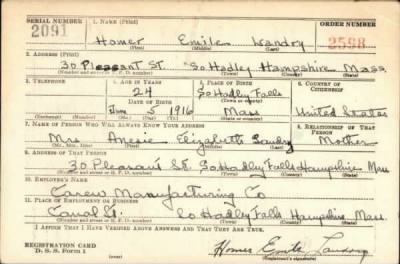 SERIAL NUMBER 1. NAME (Print) ORDER NUMBER
2091 Homer Emile Landry 2598
(First) (Middle) (Last)
2. ADDRESS (Print)
30 Pleasant St. So Hadley Hampshire Mass
(Number and street or R. F. D. number) (Town) (County) (State)
3. TELEPHONE 4. AGE IN YEARS 5. PLACE OF BIRTH 6. COUNTRY OF CITIZENSHIP
24 So Hadley Falls
DATE OF BIRTH (Town or county)
5 1916 Mass United States
(Exchange) (Number) (Mo.) (Day) (Yr.) (State or country)
7. NAME OF PERSON WHO WILL ALWAYS KNOW YOUR ADDRESS 8. RELATIONSHIP OF THAT PERSON
Mrs Angie Elizabeth Landry Mother
(Mr., Mrs., Miss) (First) (Middle) (Last)
9. ADDRESS OF THAT PERSON
30 Pleasant St. So Hadley Falls Hampshire Mass
(Number and street or R. F. D. number) (Town) (County) (State)
10. EMPLOYER'S NAME
Carew Manufacturing Co
11. PLACE OF EMPLOYMENT OR BUSINESS
Canal St. So Hadley Falls Hampshire Mass.
(Number and street or R. F. D. number) (Town) (County) (State)
I AFFIRM THAT I HAVE VERIFIED ABOVE ANSWERS AND THAT THEY ARE TRUE.
REGISTRATION CARD
D. S. S. Form 1 Homer Emile Landry
(over) (Registrant's signature)